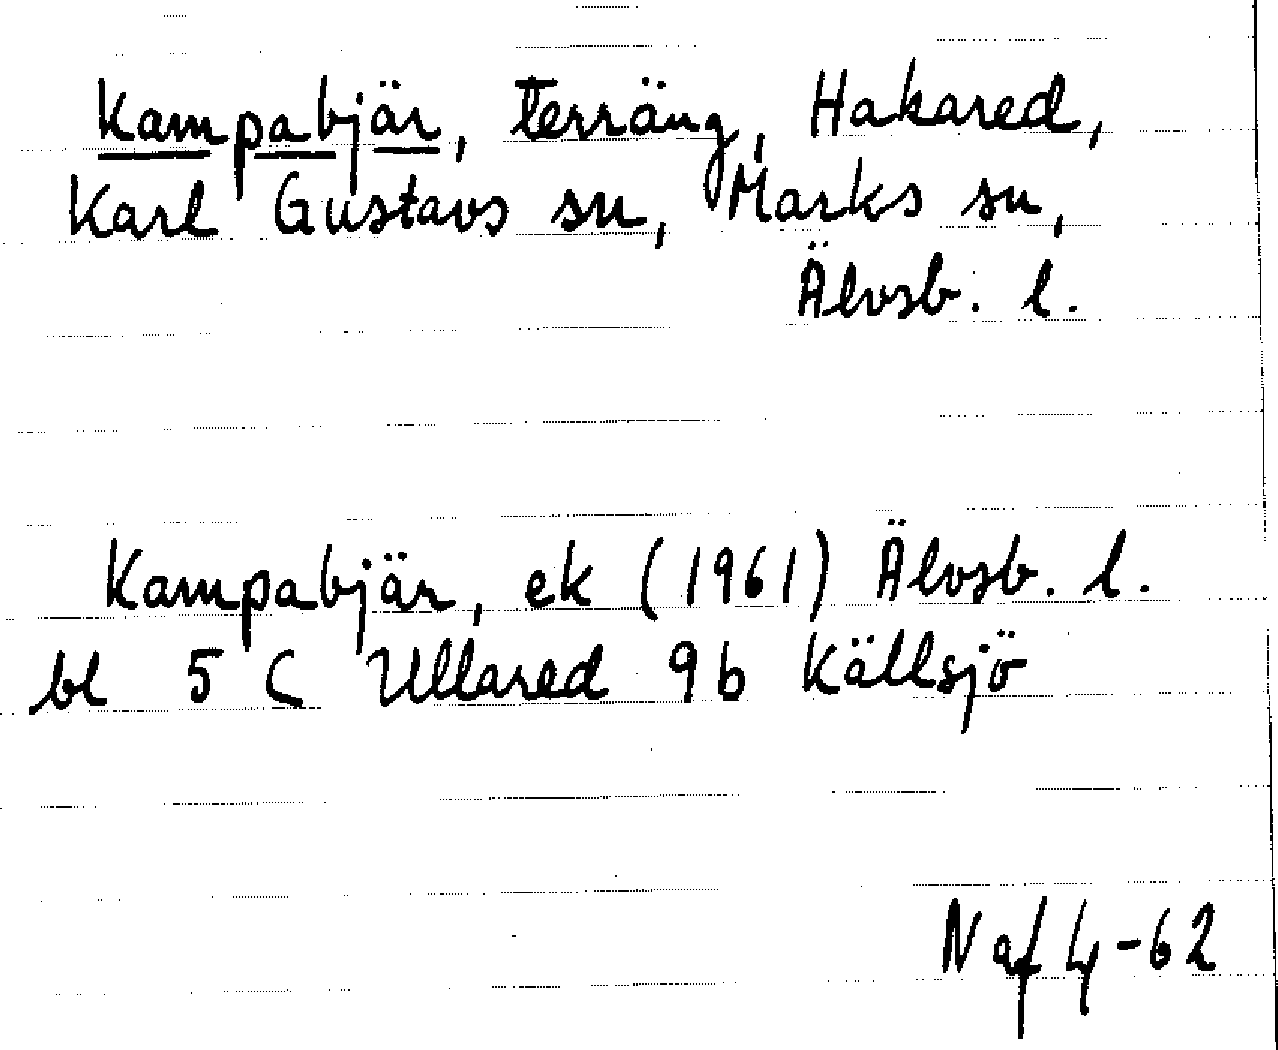 Kampabjär, terräng, Hakared,
Karl Gustavs sn, Marks sn,
Älvsb. l.
Kampabjär, ek (1961) Älvsb. l.
bl 5 C Ullared 9b Källsjö
Naf 4-62